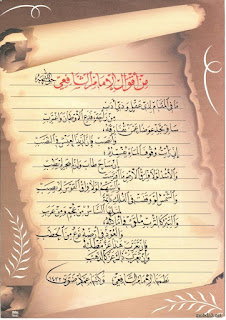 من أقوال الإمام الشافعي
ما في المقام لذي عقل وذي أدب
من راحة فدع الأوطان واغترب
سافر تجد عوضا عمن تفارقه
وانصب فإن لذيذ العيش في النصب
إني رأيت وقوف الماء يفسده
إن ساح طاب وإن لم يجر لم يطب
والأسد لولا فراق الأرض ما افترست
والسهم لولا فراق القوس لم يصب
والشمس لو وقفت في الفلك دائمة
لملها الناس من عجم ومن عرب
والتبر كالترب ملقى في أماكنه
والعود في أرضه نوع من الحطب
فإن تغرب هذا عز مطلبه
وإن تغرب ذاك عز كالذهب